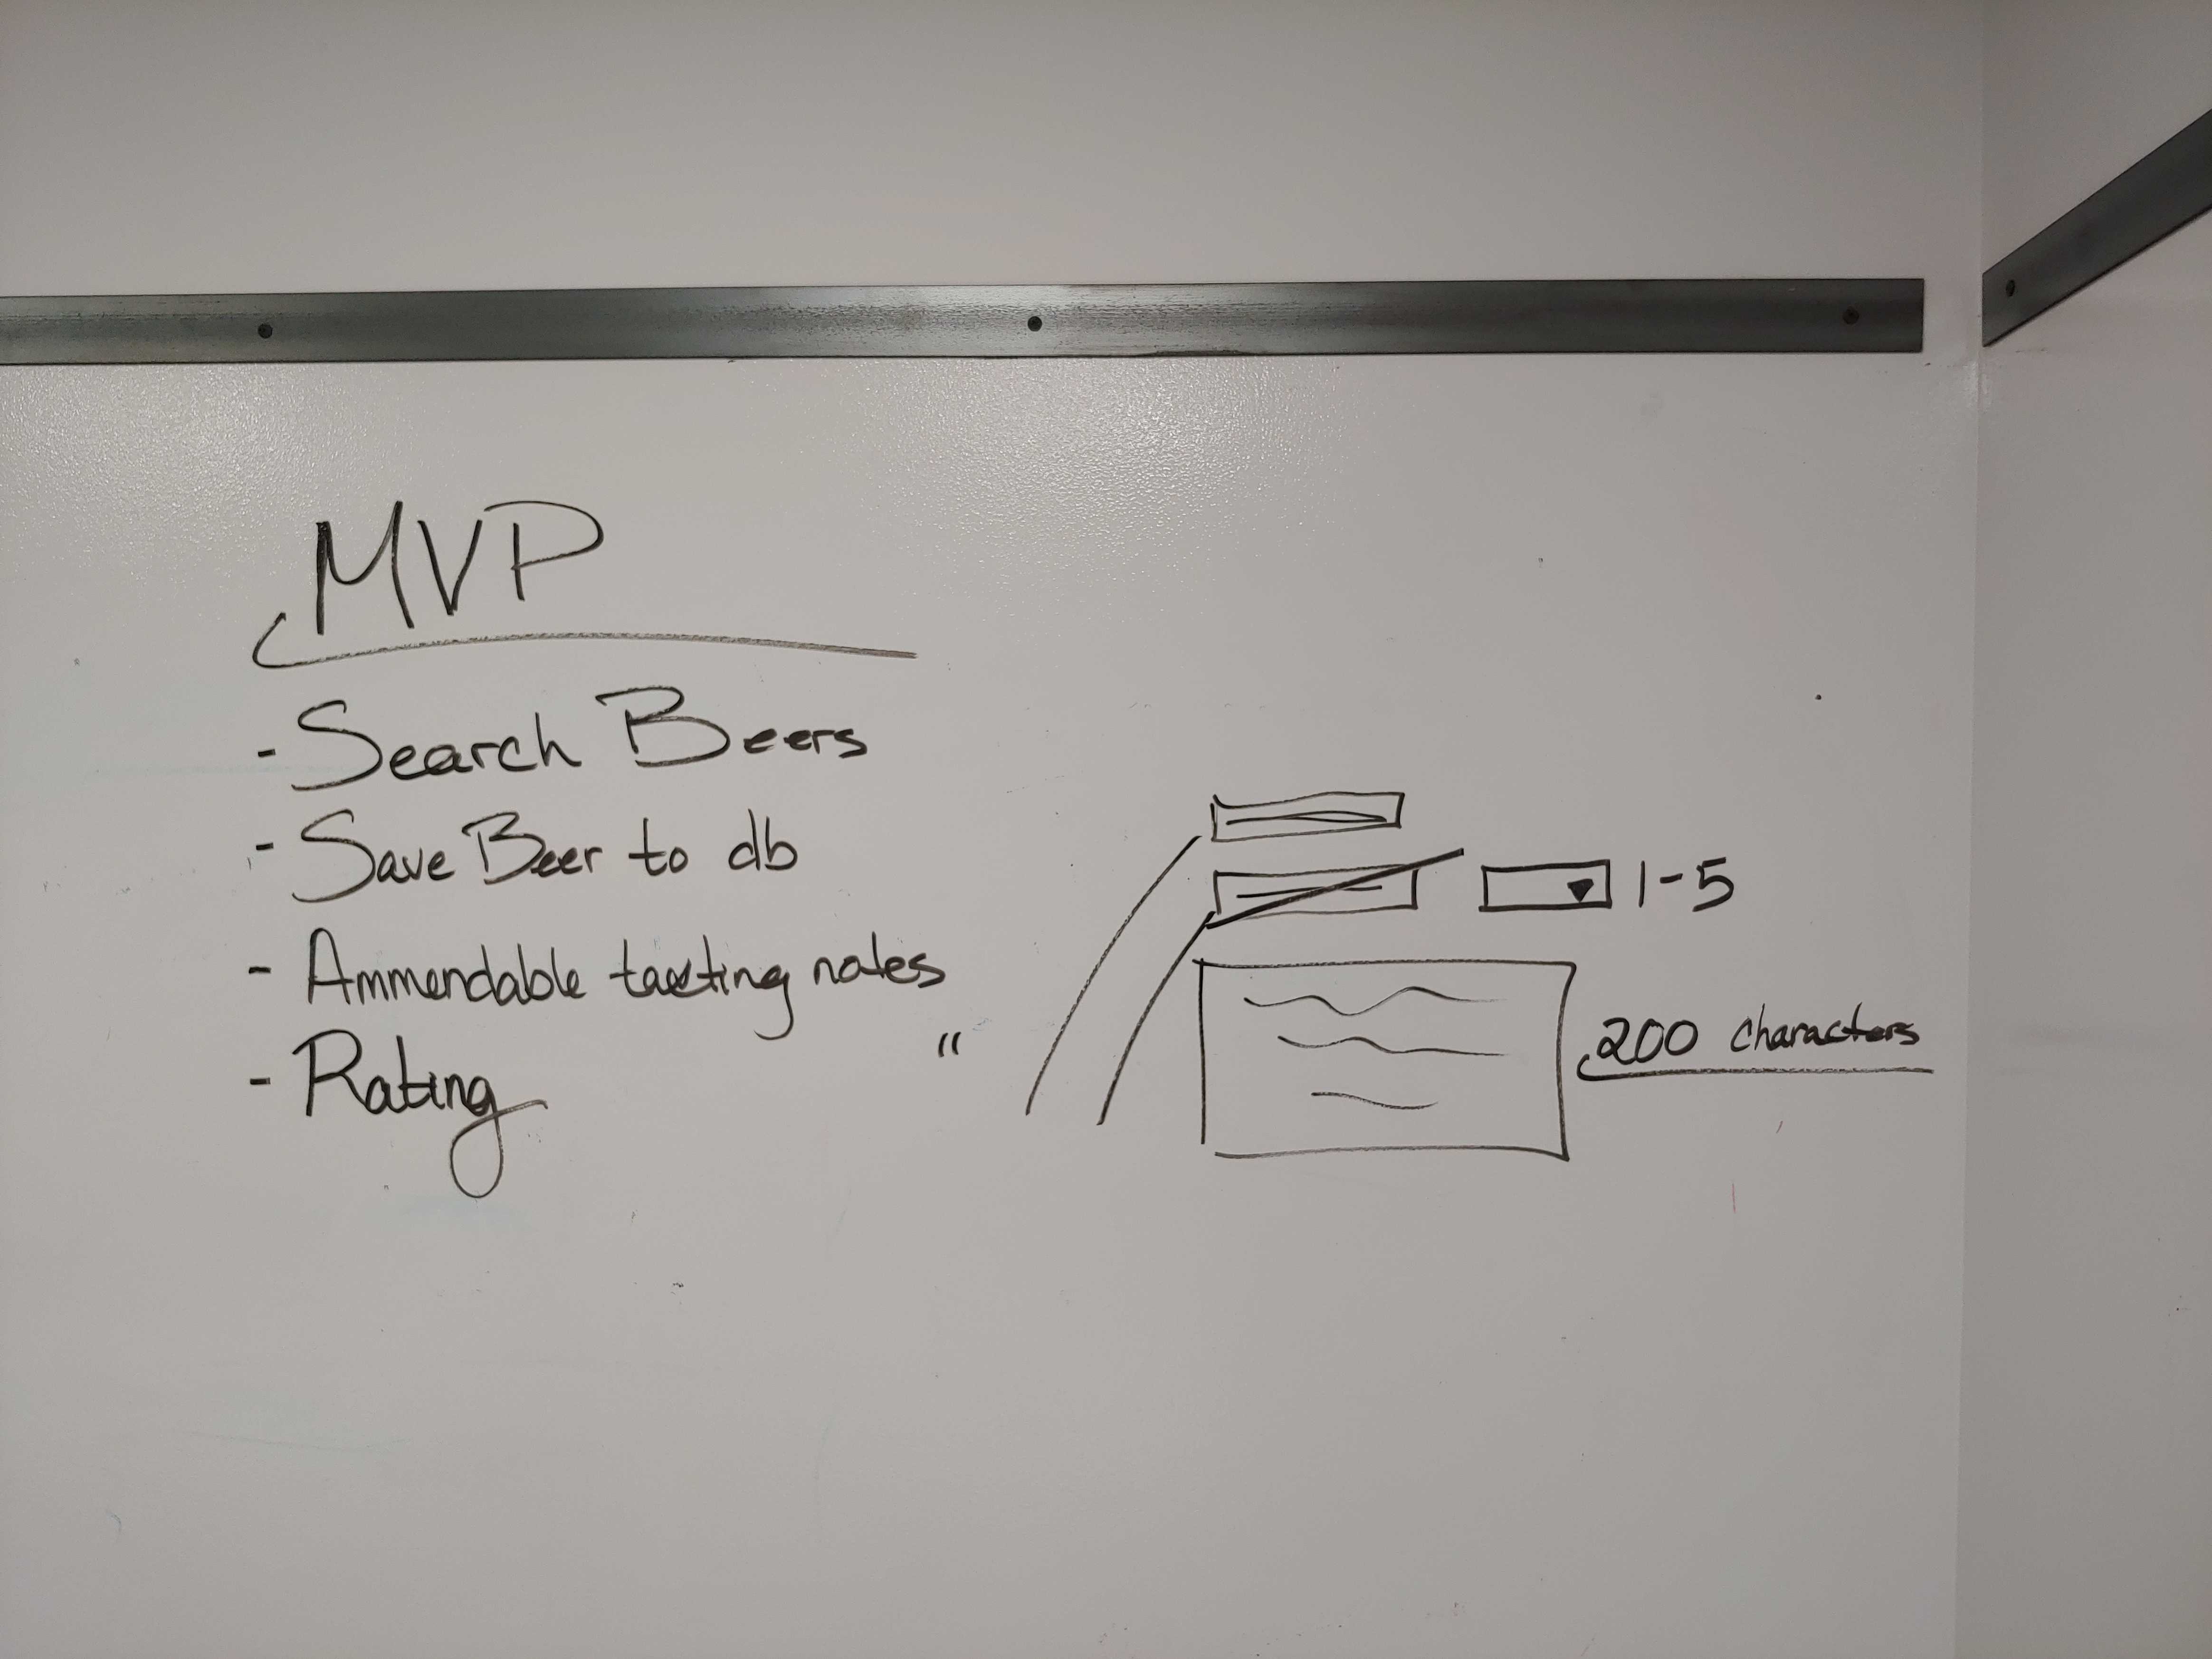 MVP
- Search Beers
- Save Beer to db
- Ammendable tasting notes
- Rating "
1-5
200 characters